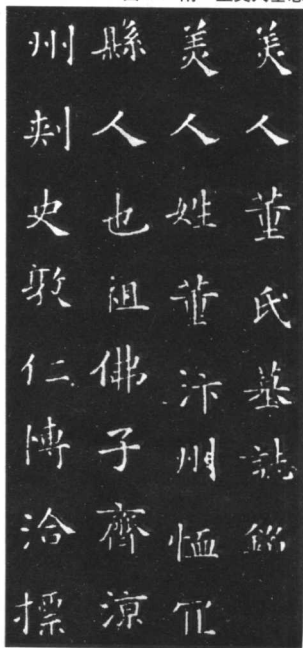 美人董氏墓誌銘
美人姓董汴州恤宜
縣人也祖佛子齊涼
州刾史敦仁愽洽摽